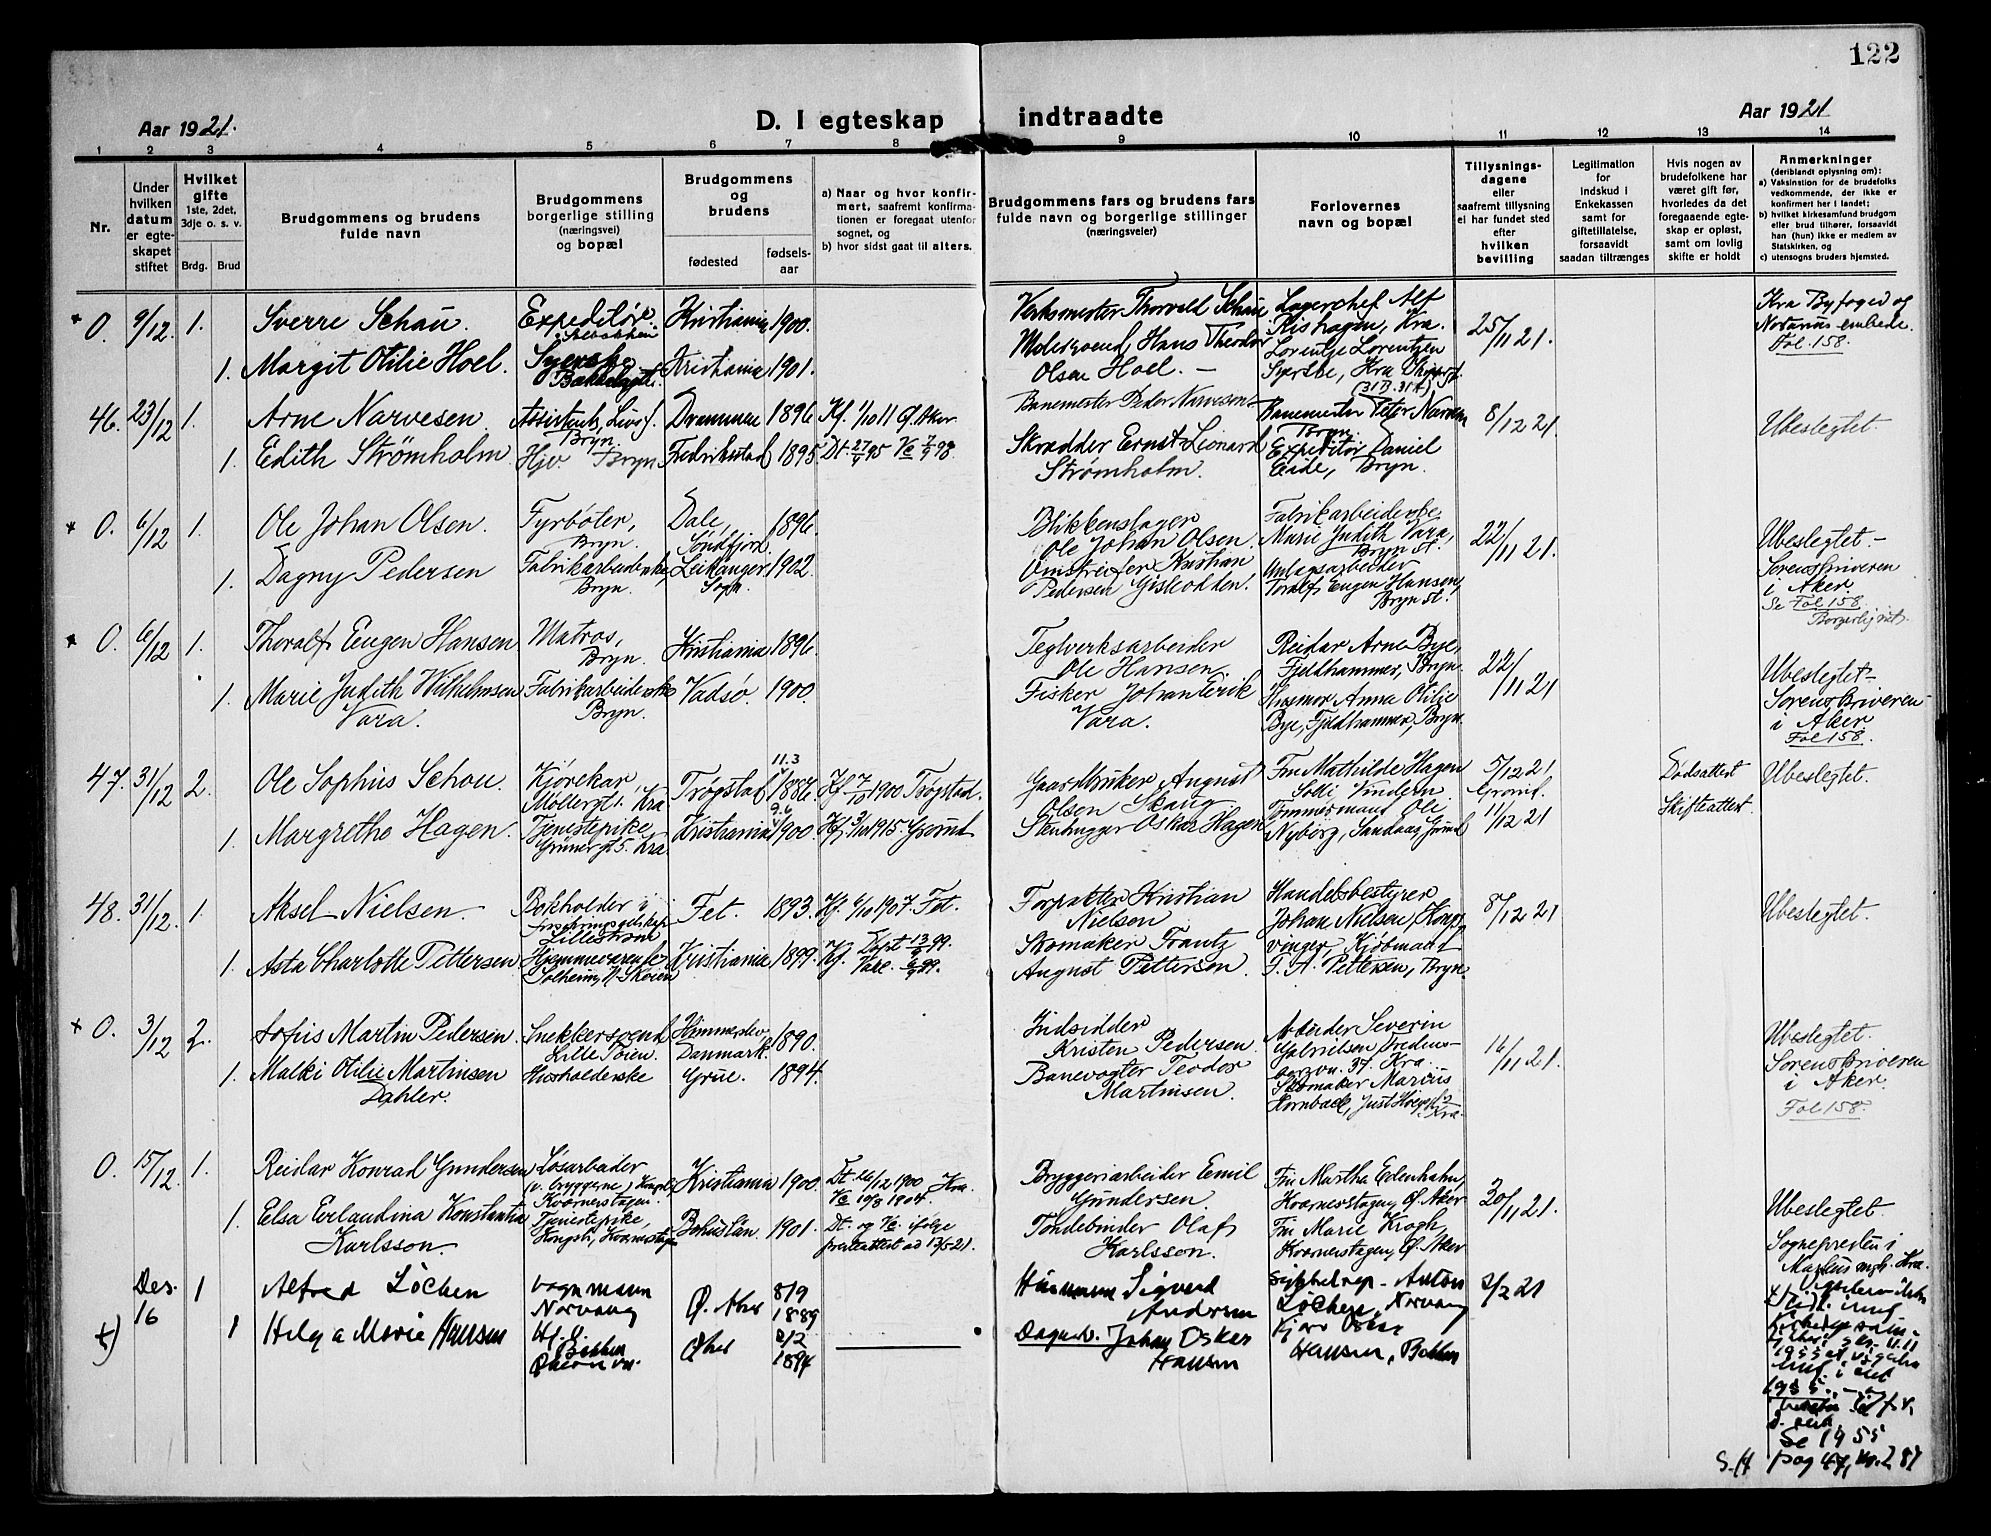 122
Aar 1921.
D. I egteskap indtraadte
Aar 1921
1 2 3 4 5 6 7 8 9 10 11 12 13 14
Nr.
Under hvilken datum er egteskapet stiftet
Hvilket gifte
1ste, 2det, 3dje o. s. v.
Brdg. Brud
Brudgommens og brudens fulde navn
Brudgommens borgerlige stilling (næringsvei) og bopæl
Brudgommens og brudens
fødested
fødselsaar
a) Naar og hvor konfirmert, saafremt konfirmationen er foregaat utenfor sognet, og
b) hvor sidst gaat til alters.
Brudgommens fars og brudens fars fulde navn og borgerlige stillinger (næringsveier)
Forlovernes navn og bopæl
Tillysningsdagene eller saafremt tillysning ei har fundet sted efter hvilken bevilling
Legitimation for indskud i Enkekassen samt for giftetillatelse, forsaavidt saadan tiltrænges
Hvis nogen av brudefolkene har været gift før, hvorledes da det foregaaende egteskap er opløst, samt om lovlig skifte er holdt
Anmerkninger (deriblandt oplysning om):
a) Vaksination for de brudefolks vedkommende, der ikke er konfirmert her i landet;
b) hvilket kirkesamfund brudgom eller brud tilhører, forsaavidt han (hun) ikke er medlem av Statskirken, og
c) utensogns bruders hjemsted.
0. 9/12 1. Sverre Schau. Expeditør Kristiania 1900. Verksmester Thorvald Schau Lagerchef Alf Rishagen, Kra. 25/11 21. Kra Byfoged og Notarius embede. Fol. 158.
1. Margit Otilie Hoel. Syerske Kristiania 1901. Malersvend, Hans Theodor Olsen Hoel. — Lorentze Lorentzen
46. 23/12 1. Arne Narvesen Assistent, Bryn. Drammen 1896 Kf. 1/10 11 Ø. Aker Banemester Peder Narvesen Banemester Peter Narvesen Bryn. 8/12 21. Ubeslegtet.
1. Edith Strømholm Hjv Bryn Fredrikstad 1895. Skrædder Ernst Leonard Strømholm. Expeditør Daniel Eide, Bryn.
0. 6/12 1. Ole Johan Olsen. Fyrbøter, Bryn. Dale, Søndfjord. 1896. Blikkenslager Ole Johan Olsen. Fabrikarbeiderske Marie Judith Vara, Bryn st. 22/11 21. Ubeslegtet.— Sorenskriveren i Aker. Se Fol 158. Borgerlig viet.
1. Dagny Pedersen Fabrikarbeiderske Bryn. Leikanger Sogn. 1902. Kristian Pedersen Gjskodden. Anlægsarbeider Toralf Eugen Hansen, Bryn st.
0. 6/12 1. Thoralf Eugen Hansen Matros, Bryn. Kristiania 1896. Teglverksarbeider Ole Hansen. Reidar Arne Bye, Fjeldhammer, Bryn. 22/11 21 Ubeslegtet— Sorenskriveren i Aker Fol 158.
1. Marie Judith Wilhelmsen Vara. Fabrikarbeiderske Bryn. Vadsø. 1900. Fisker Johan Erik Vara. Husmor Anna Otilie Bye, Fjeldhammer, Bryn.
47. 31/12 2. Ole Sophus Schou Kjørekar Møllergt. Kra Trøgstad 11.3 1886. Kf 7/10 1900 Trøgstad. Gaardbruker August Olsen Skaug Fru Mathilde Hagen 5/12 21 Grorud. 11/12 21 Dødsattest Skifteattest Ubeslegtet.
1. Margrethe Hagen. Tjenestepike Grünergt 5. Kra. Kristiania 1900. Kf. 3/10 1915. Grorud Stenhugger Oskar Hagen Tømmermand Ole Nyborg,
48. 31/12. 1. Aksel Nielsen. Bokholder i Lillestrøm Fet. 1893. Kf. 6/10 1907. Fet. Forpakter Kristian Nielsen Handelsbestyrer Johan Nielsen, Kongsvinger 8/12 21 Ubeslegtet.
1. Asta Charlotte Pettersen Hjemmeværende Solheim, Kristiania 1899. Kf. Skomaker Frantz August Pettersen. Kjøbmand F. A. Pettersen, Bryn.
0. 3/12 2. Sofus Martin Pedersen. Snekkersvend Lille Tøien. Danmark. 1890. Indsidder Kristen Pedersen. Arbeider Severin Gabrielsen 16/11 21. Ubeslegtet. Sorenskriveren i Aker. Fol 158.
1. Malki Otilie Martinsen Dahler. Husholderske Grue. 1894. Banevogter Teodor Martinsen. Skomaker Marius
0. 15/12. 1. Reidar Konrad Gundersen Løsarbeider Kværnerstagen. Kristiania 1900. Dt. 26/12 1900 Kra. Vc 10/8 1904. Bryggeriarbeider Emil Gundersen. Fru Martha Edenhahn, Kværnerstagen, Ø. Aker 30/11 21. Ubeslegtet. Sognepresten i
1. Elsa Erlandina Konstantia Karlsson. Tjenestepike, Bohuslän. 1901. Dt. og Vc. ifølge presteattest ad 13/5 21. Tøndebinder Olaf Karlsson. Fru Marie Krogh, Kværnerstagen, Ø. Aker
Des. 16 1 Alfred Løchen Vognmann Norvang Ø. Aker 8/9 1889 Husmann Sigvard Andersen Anton Løchen, Norvang 2/2 21
1 Helga Marie Hansen Ø. Aker 2/2 1894 Dagarb. Johan Oskar Hansen Oskar Hansen, Bakken
Se 1955
pag 47, nr. 281